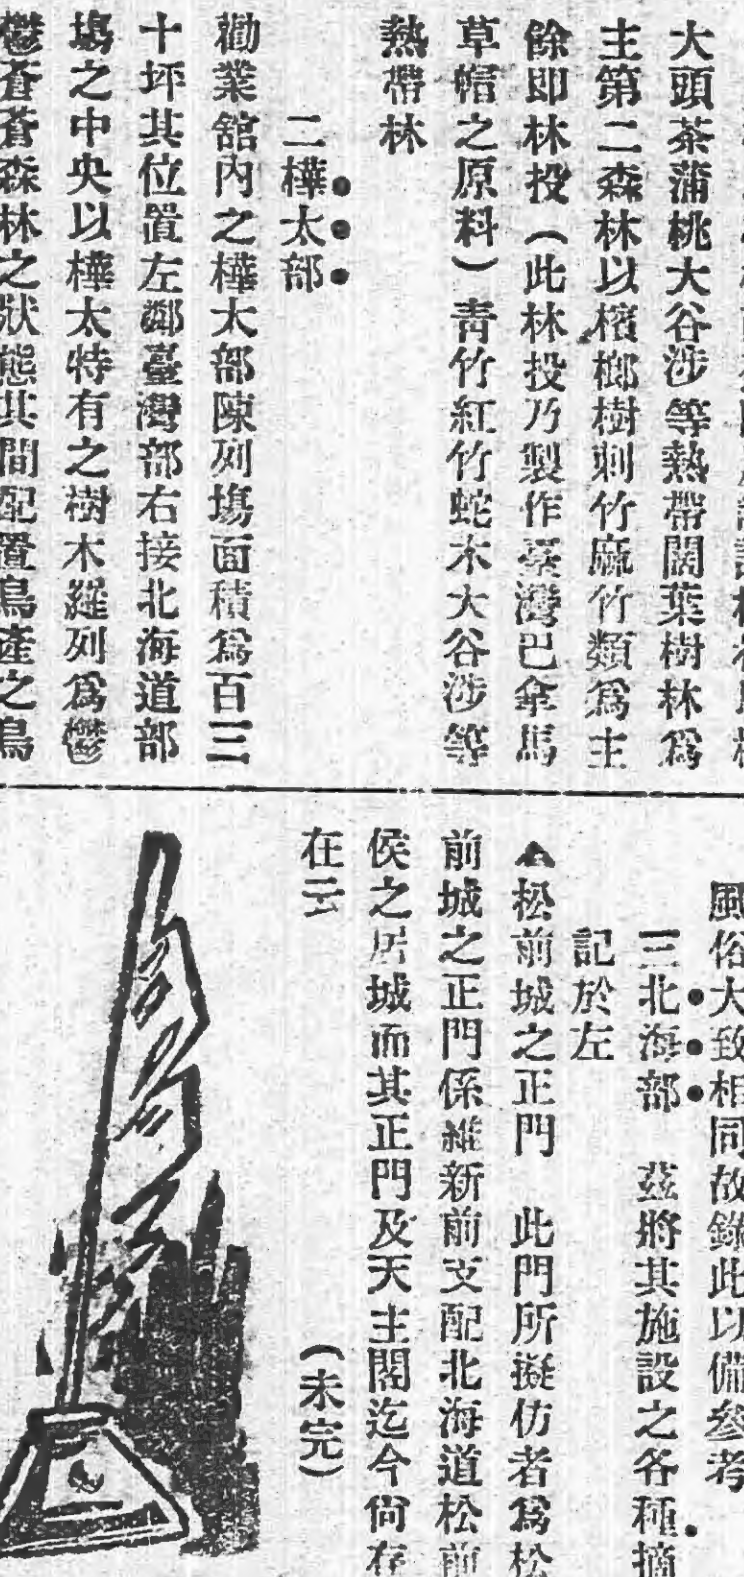 大頭茶蒲桃大谷涉等熱帶闊葉樹林爲
主第二森林以檳榔樹刺竹麻竹類爲主
餘即林投（此林投乃製作臺灣巴拿馬
草帽之原料）靑竹紅竹蛇木大谷涉等
熱帶林
二樺太部
勸業舘內之樺太部陳列場面積爲百三
十坪其位置左鄰臺灣部右接北海道部
塲之中央以樺太特有之樹木羅列爲鬱
鬱蒼蒼森林之狀態其間配置鳥產之鳥
風俗大致相同故錄此以備參考
三北海部　茲將其施設之各種摘
記於左
▲松前城之正門　此門所擬仿者爲松
前城之正門係維新前支配北海道松前
侯之居城而其正門及天主閣迄今尙存
在云　（未完）